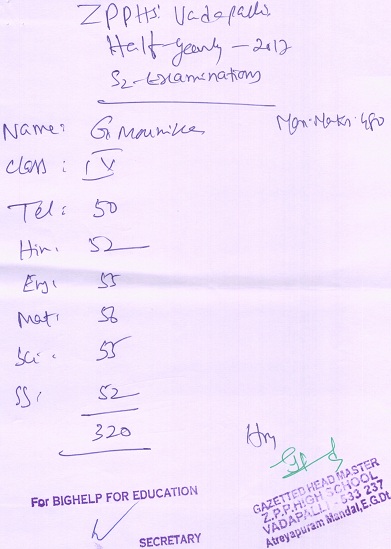 ZPPHS Vadapalli
Half-Yearly - 2017
S2-Examinations
Name: G. Mounika
Max. Marks. 480
Class: IX
Tel: 50
Hin. 52
Eng: 55
Mat: 56
Sci. 55
SS: 52
320
Hm
For BIGHELP FOR EDUCATION
SECRETARY
GAZETTED HEAD MASTER
Z.P.P.HIGH SCHOOL
VADAPALLI - 533 237
Atreyapuram Mandal,E.G.Dt